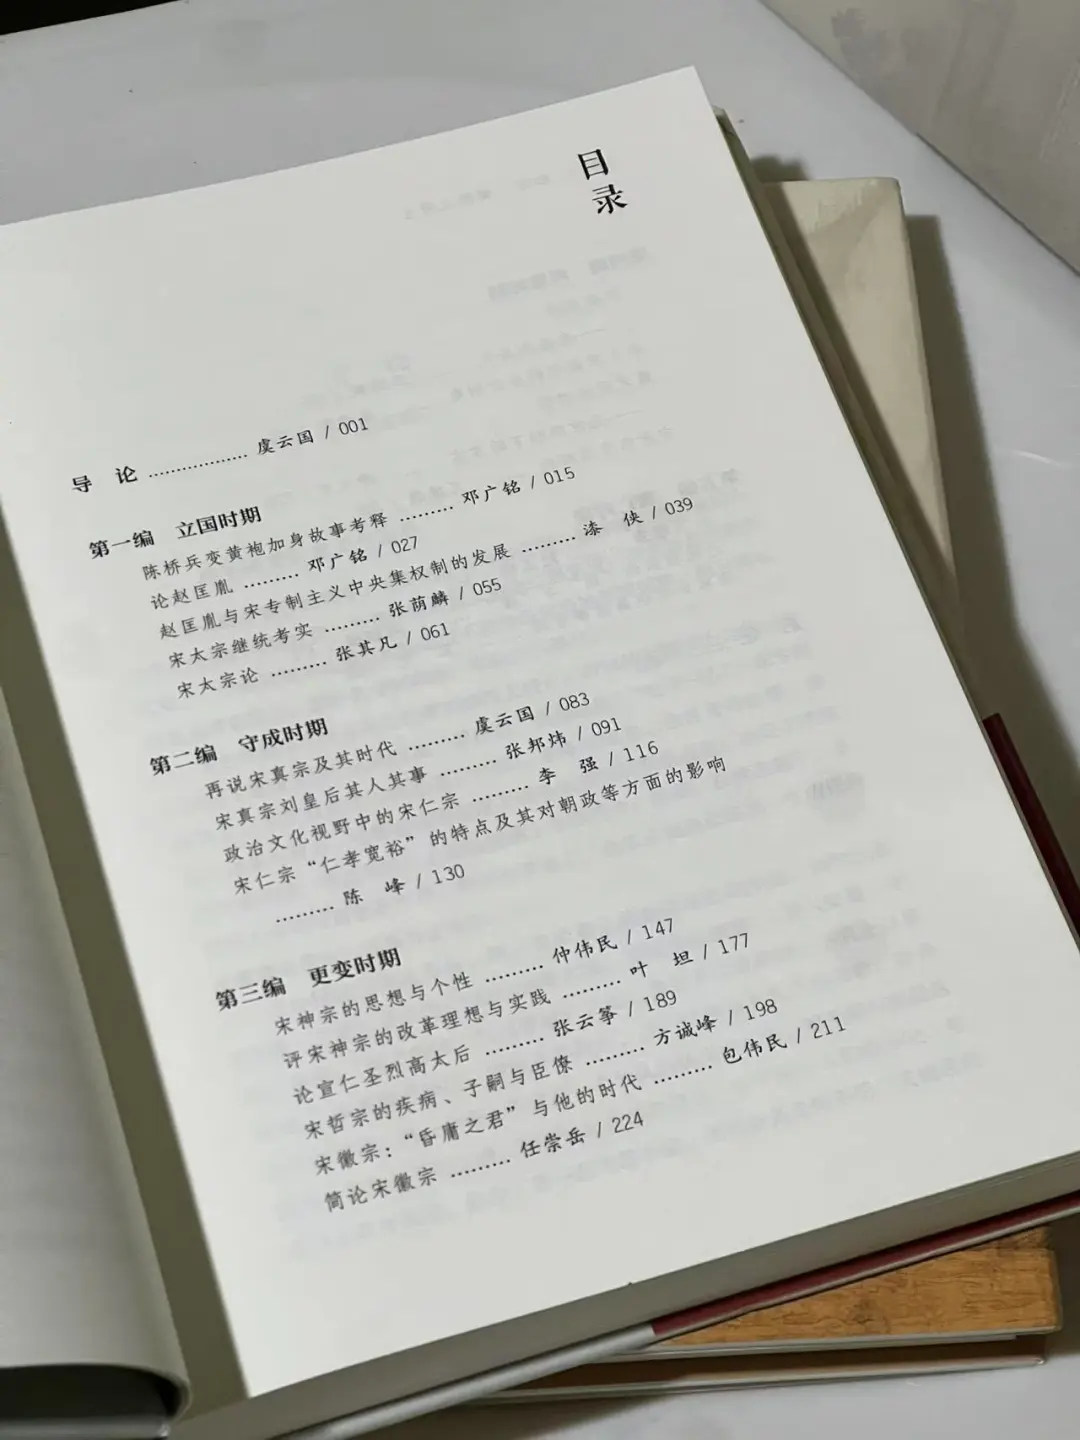 目录
导　论 .................. 虞云国 / 001
第一编　立国时期
陈桥兵变黄袍加身故事考释 ......... 邓广铭 / 015
论赵匡胤 ......... 邓广铭 / 027
赵匡胤与宋专制主义中央集权制的发展 ......... 漆　侠 / 039
宋太宗继统考实 ......... 张荫麟 / 055
宋太宗论 ......... 张其凡 / 061
第二编　守成时期
再说宋真宗及其时代 ......... 虞云国 / 083
宋真宗刘皇后其人其事 ......... 张邦炜 / 091
政治文化视野中的宋仁宗 ......... 李　强 / 116
宋仁宗“仁孝宽裕”的特点及其对朝政等方面的影响
......... 陈　峰 / 130
第三编　更变时期
宋神宗的思想与个性 ......... 仲伟民 / 147
评宋神宗的改革理想与实践 ......... 叶　坦 / 177
论宣仁圣烈高太后 ......... 张云筝 / 189
宋哲宗的疾病、子嗣与臣僚 ......... 方诚峰 / 198
宋徽宗：“昏庸之君”与他的时代 ......... 包伟民 / 211
简论宋徽宗 ......... 任崇岳 / 224